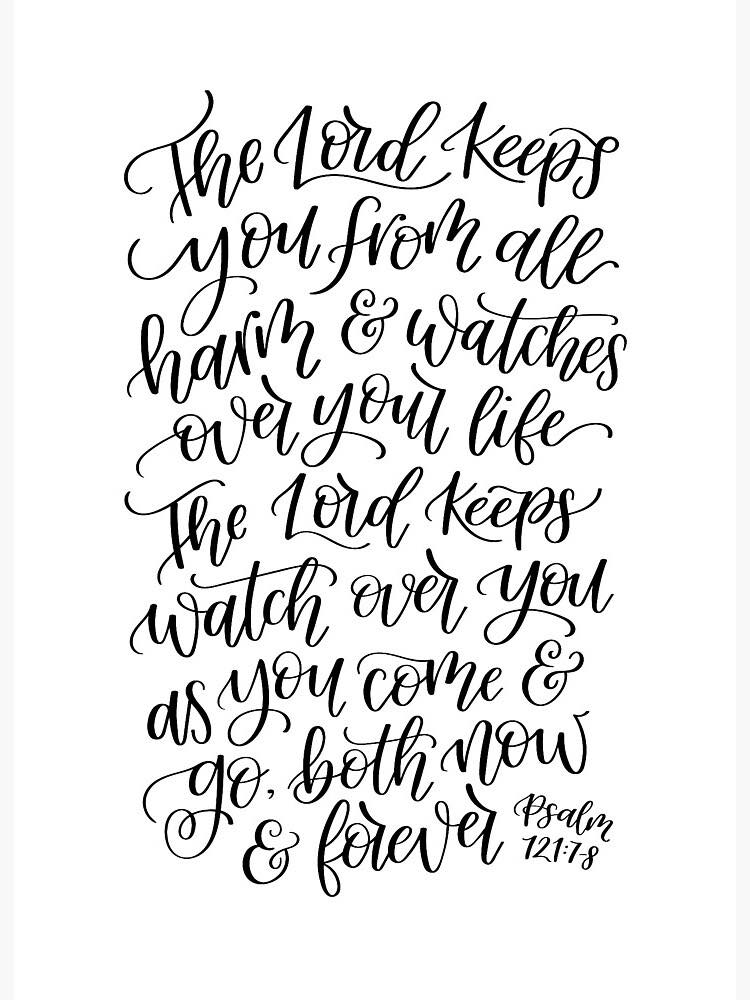 The Lord keeps
you from all
harm & watches
over your life
The Lord keeps
watch over you
as you come &
go, both now
& forever
Psalm
121:7-8